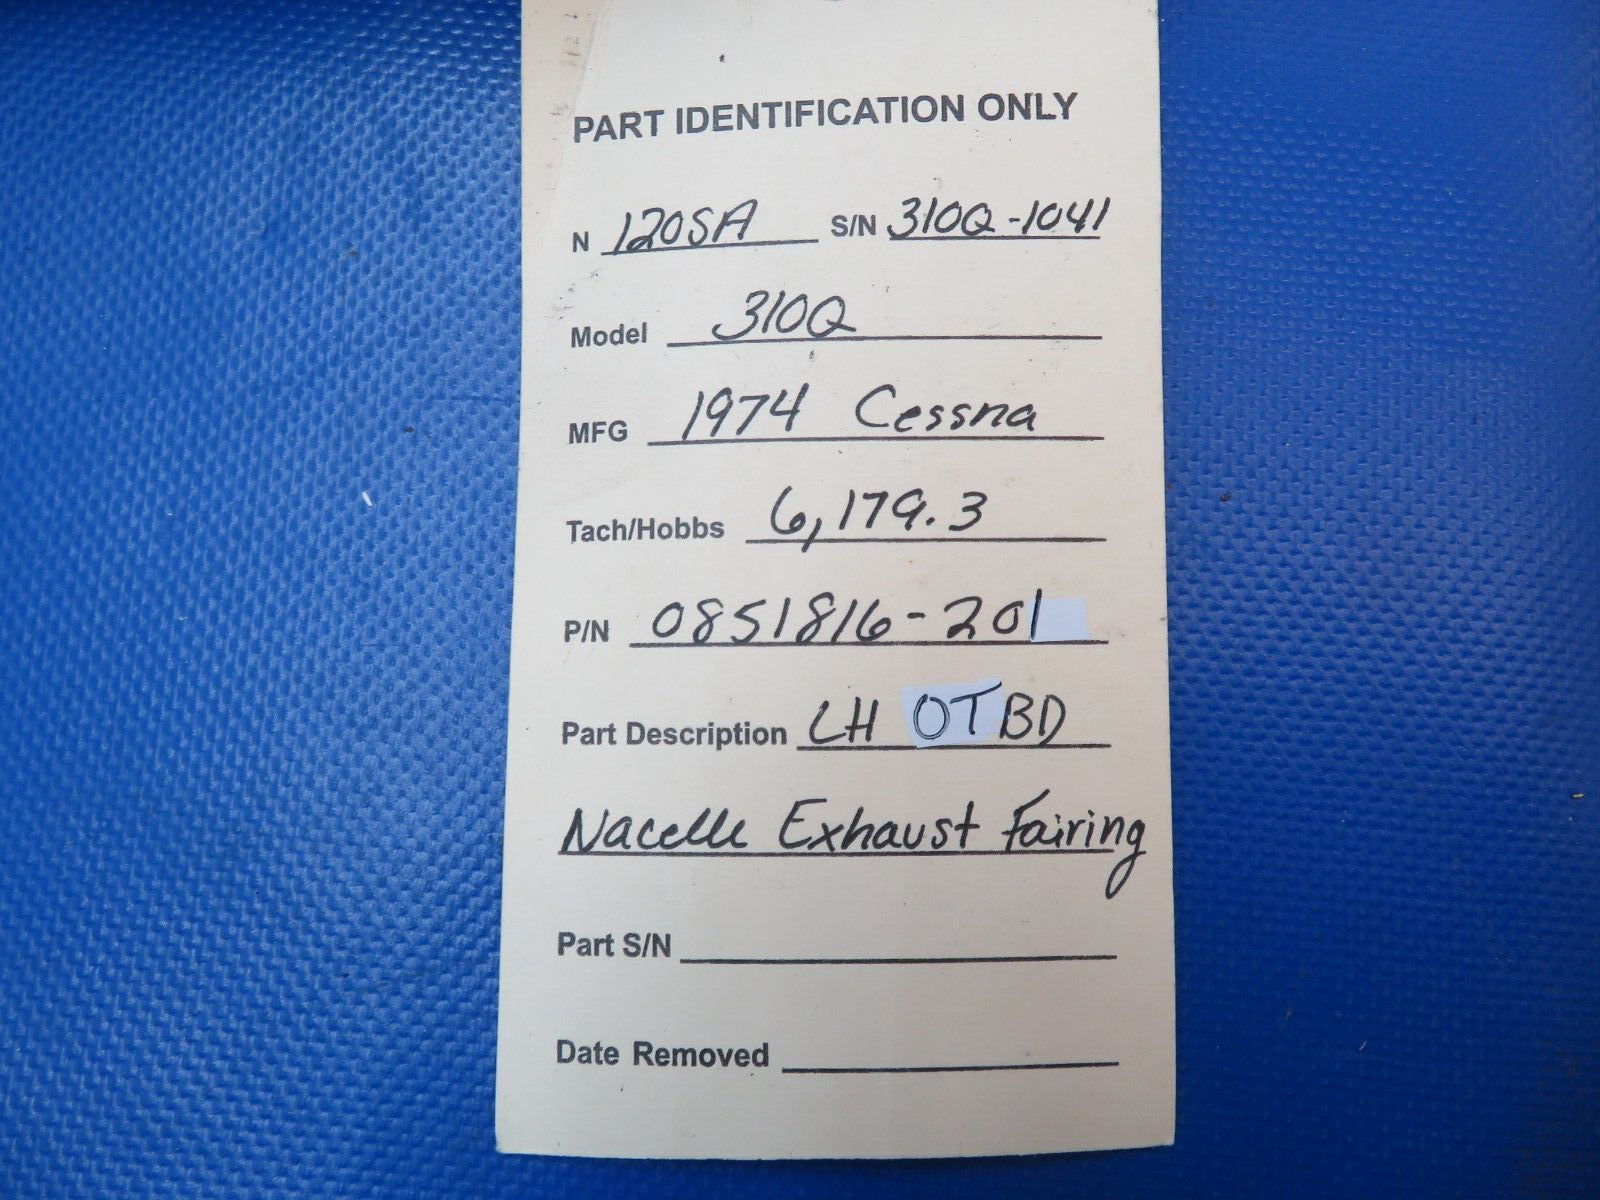 PART IDENTIFICATION ONLY
N 120SA S/N 310Q-1041
Model 310Q
MFG 1974 Cessna
Tach/Hobbs 6,179.3
P/N 0851816-201
Part Description LH OTBD
Nacelle Exhaust Fairing
Part S/N
Date Removed